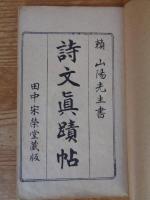 頼 山陽先生書
詩文眞蹟帖
田中 宋榮堂藏版